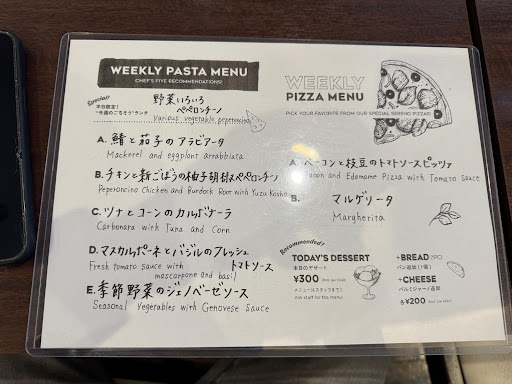 WEEKLY PASTA MENU
CHEF'S FIVE RECOMMENDATIONS!
Special!
平日限定!
"今週のごちそう"ランチ
野菜いろいろ
ペペロンチーノ
Various vegetable peperoncino
A. 鯖と茄子のアラビアータ
Mackerel and eggplant arrabbiata
B. チキンと新ごぼうの柚子胡椒ペペロンチーノ
Peperoncino Chicken and Burdock Root with Yuzu Kosho
C. ツナとコーンのカルボナーラ
Carbonara with Tuna and Corn
D. マスカルポーネとバジルのフレッシュ
トマトソース
Fresh tomato sauce with
mascarpone and basil
E. 季節野菜のジェノベーゼソース
Seasonal Vegetables with Genovese Sauce
WEEKLY
PIZZA MENU
PICK YOUR FAVORITE FROM OUR SPECIAL SERENO PIZZAS!
A. ベーコンと枝豆のトマトソースピッツァ
Bacon and Edamame Pizza with Tomato Sauce
B. マルゲリータ
Margherita
Recommended!
TODAY'S DESSERT
本日のデザート
¥300
メニューはスタッフまで!
Ask staff for the menu!
+BREAD (1PC)
パン追加 (1個)
+CHEESE
パルミジャーノ追加
各¥200